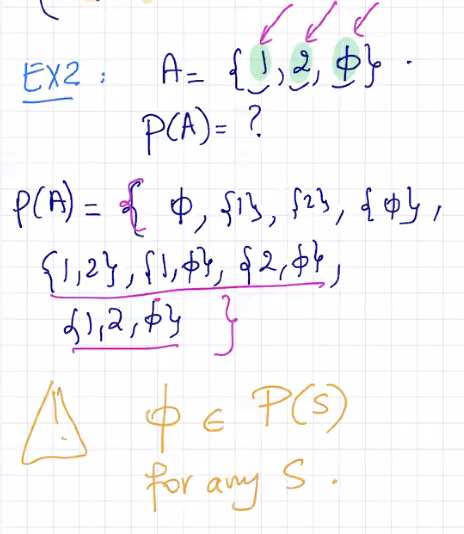 EX2 : A = {1, 2, ϕ} .
P(A) = ?
P(A) = { ϕ, {1}, {2}, {ϕ},
{1,2}, {1,ϕ}, {2,ϕ},
{1,2,ϕ} }
!
ϕ ∈ P(S)
for any S .